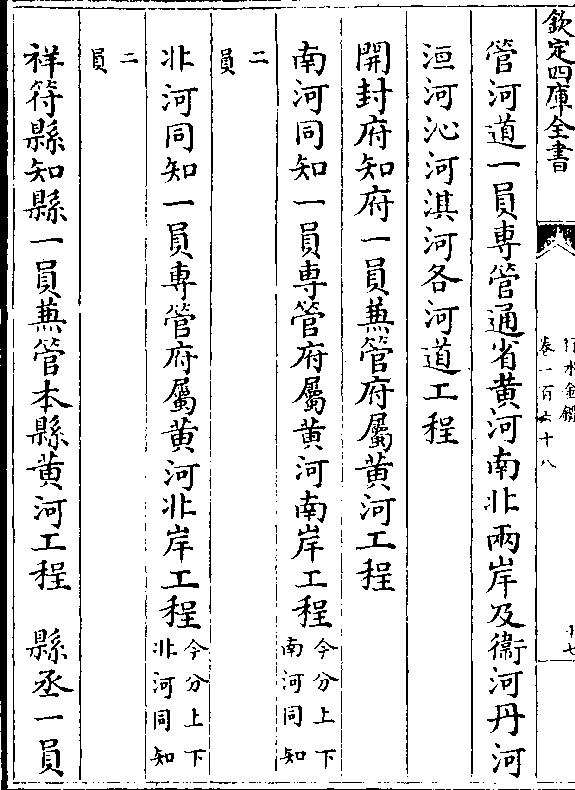 欽定四庫全書
行水金鑑
卷一百六十八
管河道一員專管通省黄河南北兩岸及衞河丹河
洹河沁河淇河各河道工程
開封府知府一員兼管府屬黄河工程
南河同知一員專管府屬黄河南岸工程今分上下南河同知
二員
北河同知一員專管府屬黄河北岸工程今分上下北河同知
二員
祥符縣知縣一員兼管本縣黄河工程　縣丞一員